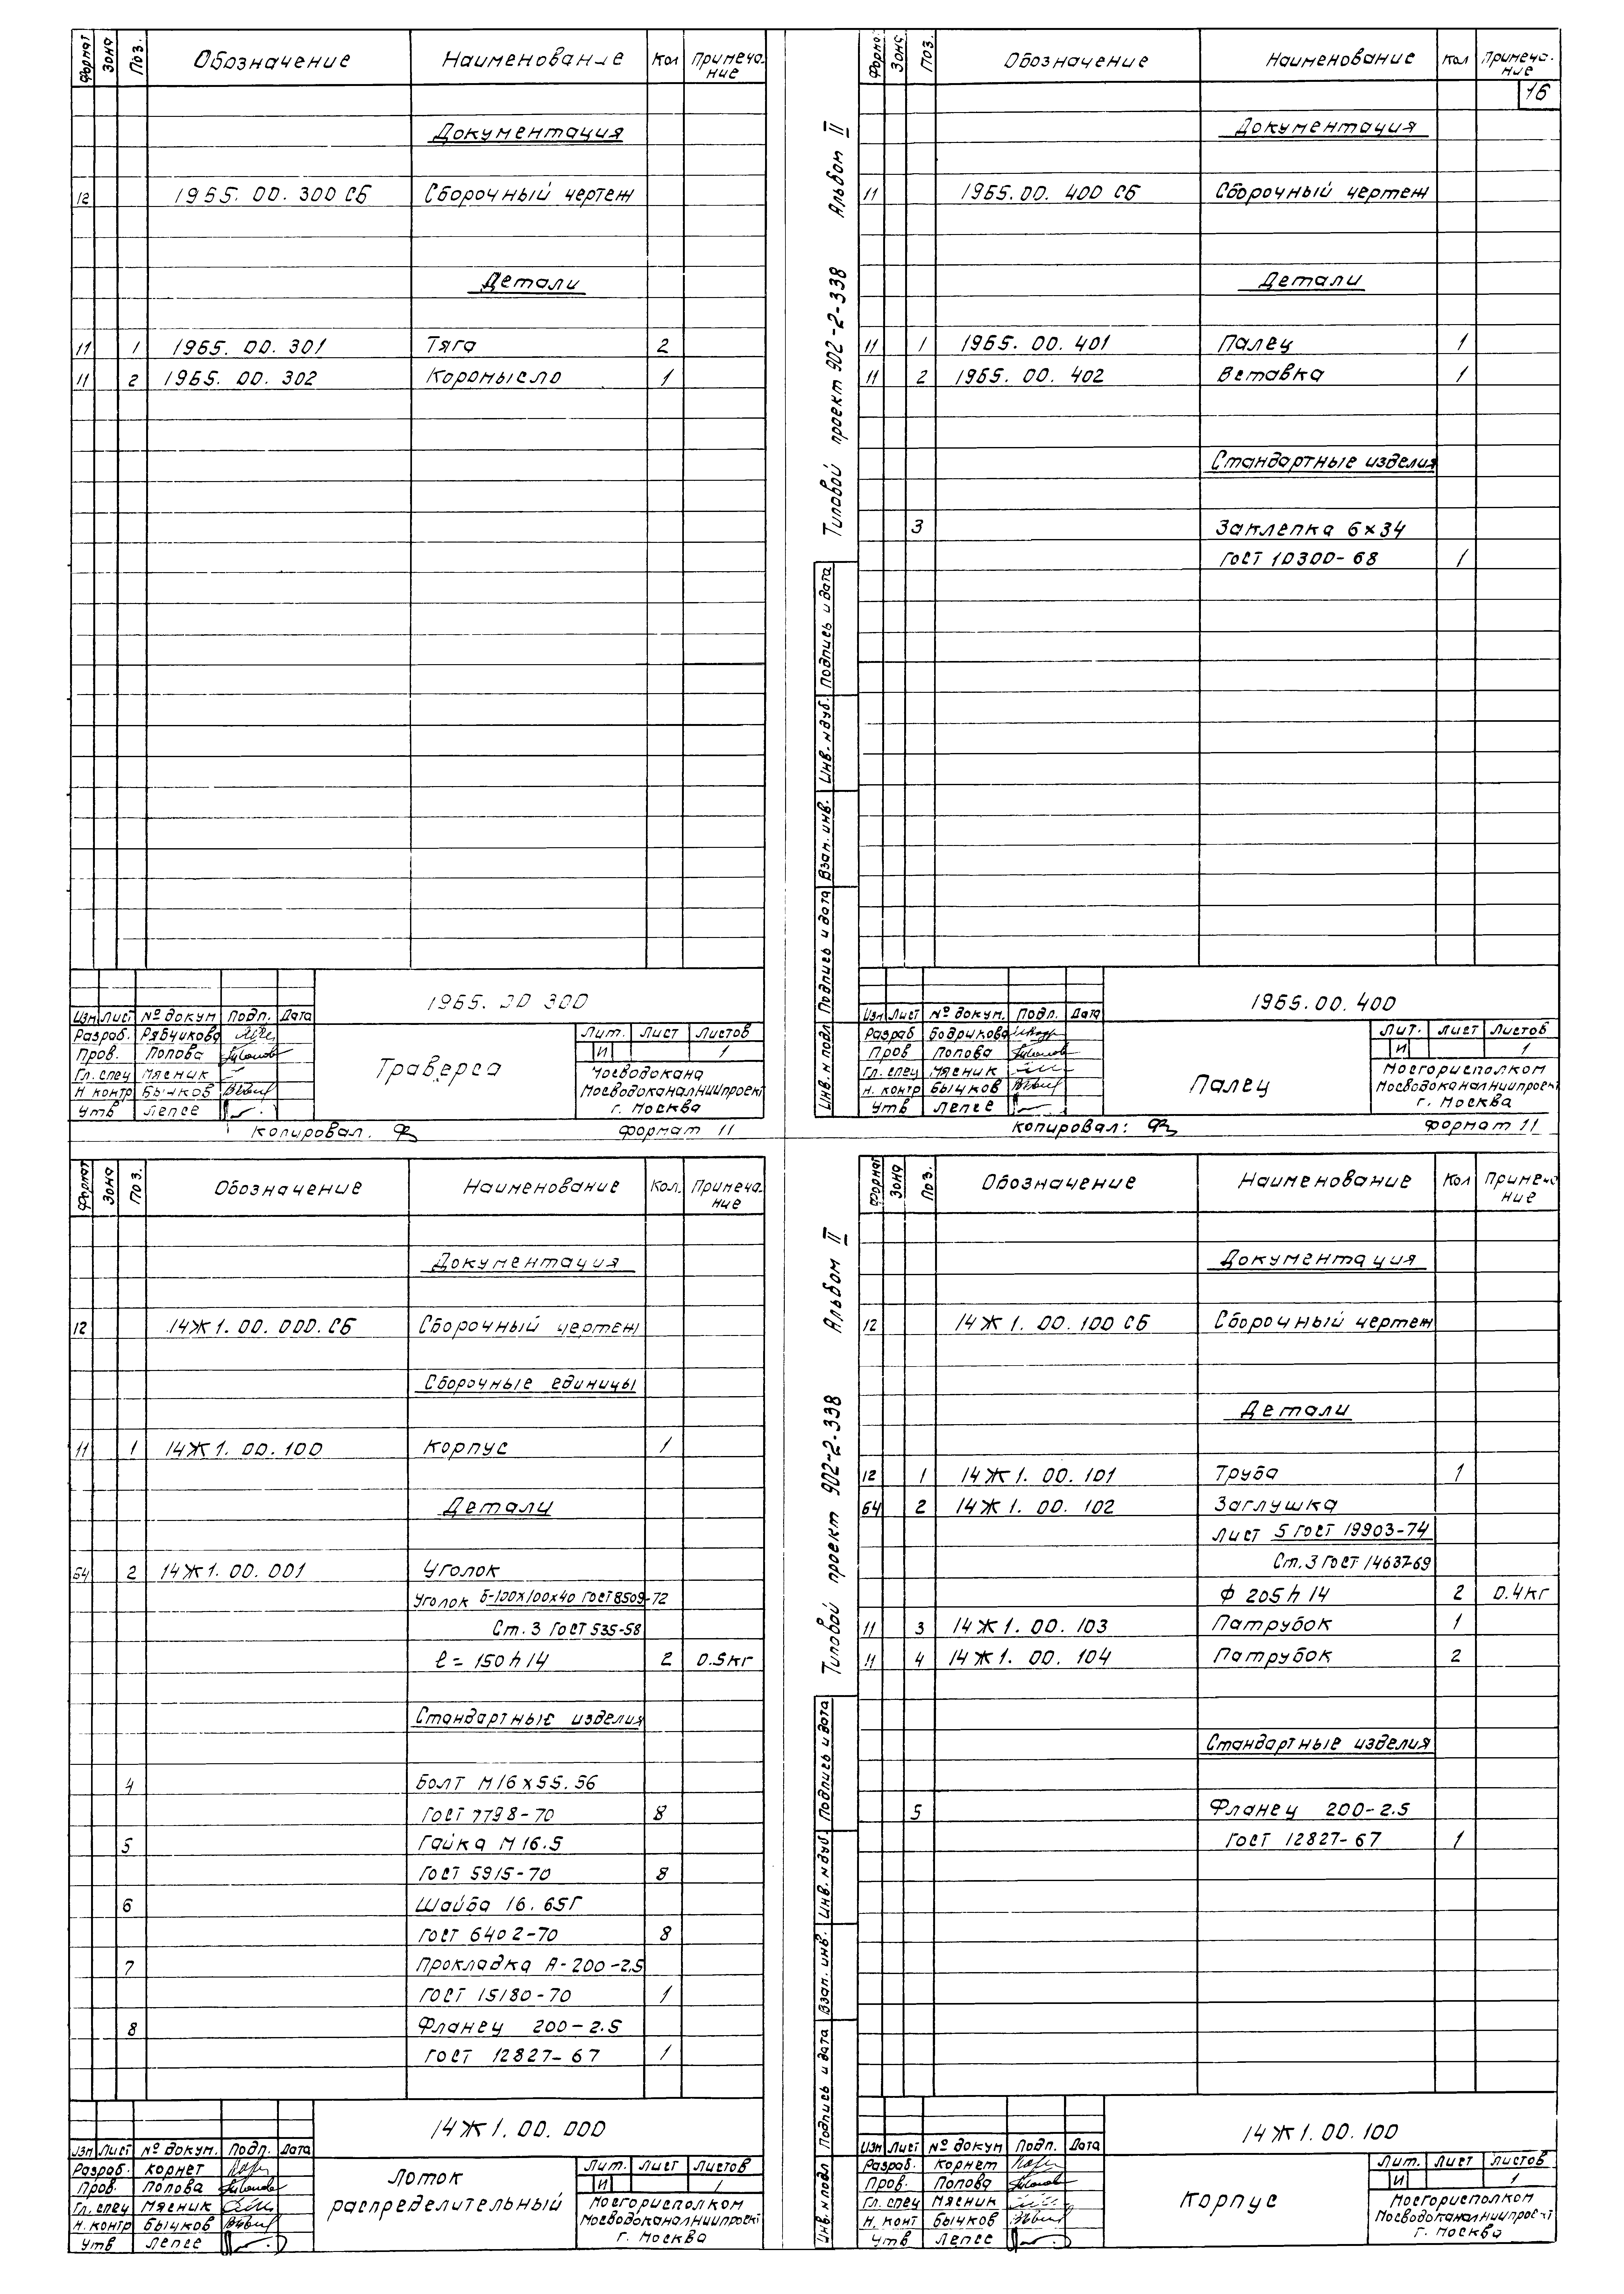 Формат Зона Поз. Обозначение Наименование Кол Примеча-
ние
Документация
12 1965.00.300 СБ Сборочный чертеж
Детали
11 1 1965.00.301 Тяга 2
11 2 1965.00.302 Коромысло 1
1965.00.300
Изм Лист № докум Подп. Дата
Разраб. Рябчикова
Пров. Попова
Гл. спец Мясник
Н. контр Бычков
Утв Лепсе
Траверса
Лит. Лист Листов
И 1
МосводоканалНИИпроект
г. Москва
Копировал: Формат 11
Форма. Зона Поз. Обозначение Наименование Кол Примеча-
ние
16
Альбом II
Типовой проект 902-2-338
Документация
11 1965.00.400 СБ Сборочный чертеж
Детали
11 1 1965.00.401 Палец 1
11 2 1965.00.402 Вставка 1
Стандартные изделия
3 Заклепка 6×34
ГОСТ 10300-68 1
Инв. № подл Подпись и дата Взам. инв. Инв. № дуб. Подпись и дата
1965.00.400
Изм Лист № докум. Подп. Дата
Разраб
Пров Попова
Гл. спец Мясник
Н. контр Бычков
Утв Лепсе
Палец
Лит. Лист Листов
И 1
Мосгорисполком
МосводоканалНИИпроект
г. Москва
Копировал: Формат 11
Формат Зона Поз. Обозначение Наименование Кол. Примеча-
ние
Документация
12 14Ж1.00.000.СБ Сборочный чертеж
Сборочные единицы
11 1 14Ж1.00.100 Корпус 1
Детали
БЧ 2 14Ж1.00.001 Уголок
Уголок Б-100×100×40 ГОСТ 8509-72
Ст.3 ГОСТ 535-58
ℓ = 150 h 14 2 0.5кг
Стандартные изделия
4 Болт М16×55.56
ГОСТ 7798-70 8
5 Гайка М16.5
ГОСТ 5915-70 8
6 Шайба 16.65Г
ГОСТ 6402-70 8
7 Прокладка А-200-2.5
ГОСТ 15180-70 1
8 Фланец 200-2.5
ГОСТ 12827-67 1
14Ж1.00.000
Изм Лист № докум. Подп. Дата
Разраб. Корнет
Пров. Попова
Гл. спец Мясник
Н. контр Бычков
Утв Лепсе
Лоток
распределительный
Лит. Лист Листов
И 1
Мосгорисполком
МосводоканалНИИпроект
г. Москва
Формат Зона Поз. Обозначение Наименование Кол Примеча
ние
Альбом II
Типовой проект 902-2-338
Документация
12 14Ж1.00.100 СБ Сборочный чертеж
Детали
12 1 14Ж1.00.101 Труба 1
БЧ 2 14Ж1.00.102 Заглушка
Лист 5 ГОСТ 19903-74
Ст.3 ГОСТ 14637-69
Ф 205 h 14 2 0.4кг
11 3 14Ж1.00.103 Патрубок 1
11 4 14Ж1.00.104 Патрубок 2
Стандартные изделия
5 Фланец 200-2.5
ГОСТ 12827-67 1
Инв. № подл Подпись и дата Взам. инв. Инв. № дуб. Подпись и дата
14Ж1.00.100
Изм Лист № докум Подп. Дата
Разраб. Корнет
Пров. Попова
Гл. спец Мясник
Н. конт Бычков
Утв Лепсе
Корпус
Лит. Лист Листов
И 1
Мосгорисполком
МосводоканалНИИпроект
г. Москва